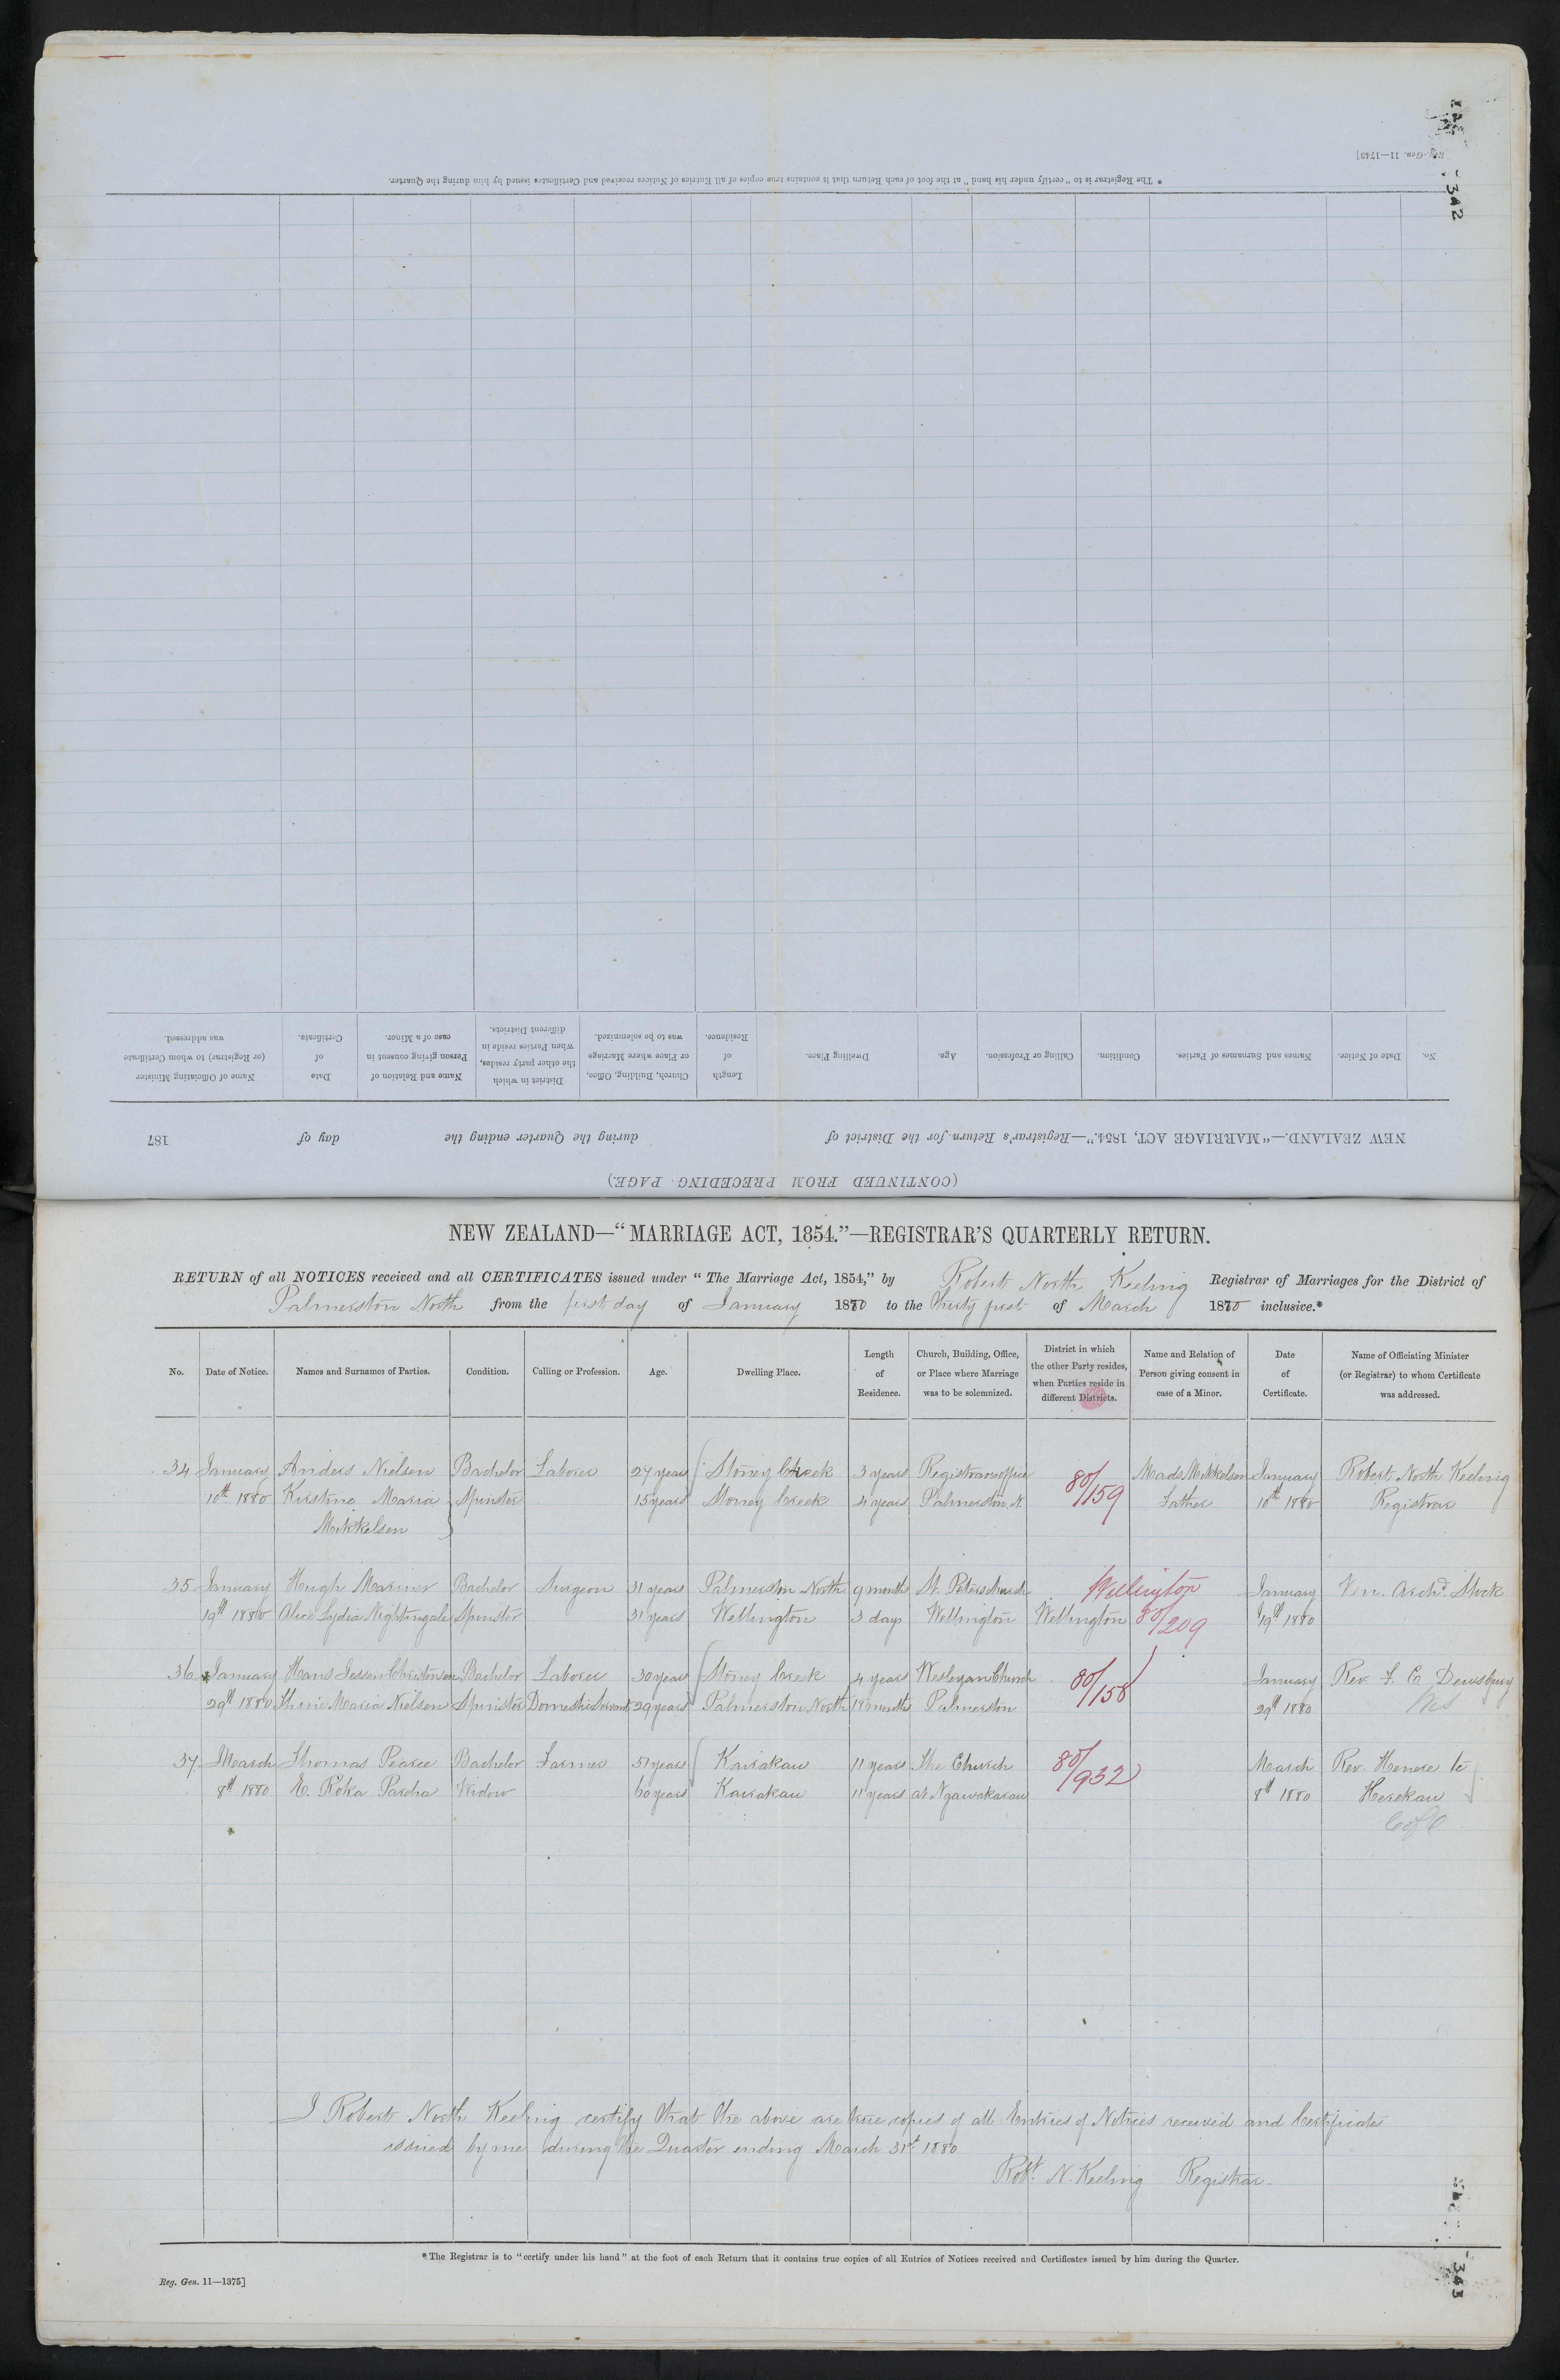 Reg. Gen. 11—1743]
342
* The Registrar is to "certify under his hand" at the foot of each Return that it contains true copies of all Entries of Notices received and Certificates issued by him during the Quarter.
(CONTINUED FROM PRECEDING PAGE.)
NEW ZEALAND.—"MARRIAGE ACT, 1854."—Registrar's Return for the District of during the Quarter ending the day of 187
No. Date of Notice. Names and Surnames of Parties. Condition. Calling or Profession. Age. Dwelling Place. Length of Residence. Church, Building, Office, or Place where Marriage was to be solemnized. District in which the other party resides, when Parties reside in different Districts. Name and Relation of Person giving consent in case of a Minor. Date of Certificate. Name of Officiating Minister (or Registrar) to whom Certificate was addressed.
NEW ZEALAND—"MARRIAGE ACT, 1854."—REGISTRAR'S QUARTERLY RETURN.
RETURN of all NOTICES received and all CERTIFICATES issued under "The Marriage Act, 1854," by Robert North Keeling Registrar of Marriages for the District of
Palmerston North from the first day of January 1880 to the thirty first of March 1880 inclusive.*
No. Date of Notice. Names and Surnames of Parties. Condition. Calling or Profession. Age. Dwelling Place. Length of Residence. Church, Building, Office, or Place where Marriage was to be solemnized. District in which the other Party resides, when Parties reside in different Districts. Name and Relation of Person giving consent in case of a Minor. Date of Certificate. Name of Officiating Minister (or Registrar) to whom Certificate was addressed.
34 January Anders Nielsen Bachelor Laborer 27 years Stoney Creek 3 years Registrars office 80/159 Mads Mikkelsen January Robert North Keeling
10th 1880 Kirstine Maria Spinster 15 years Stoney Creek 4 years Palmerston N. Father 10th 1880 Registrar
Mikkelsen
35 January Hugh Mariner Bachelor Surgeon 31 years Palmerston North 9 months St. Peters Church Wellington January Ven. Archd. Stock
19th 1880 Alice Lydia Nightingale Spinster 31 years Wellington 3 days Wellington Wellington 80/209 19th 1880
36 January Hans Jessen Christensen Bachelor Laborer 30 years Stoney Creek 4 years Wesleyan Church 80/158 January Rev. F. C. Dewsbury
29th 1880 Maria Nielsen Spinster Domestic Servant 29 years Palmerston North 18 months Palmerston 29th 1880 Wes
37 March Thomas Pearce Bachelor Farmer 57 years Kairakau 11 years The Church 80/932 March Rev. Henere te
8th 1880 E. Roka Widow 60 years Kairakau 11 years at Ngawakarau 8th 1880 Herekau
C of E
I Robert North Keeling certify that the above are true copies of all Entries of Notices received and Certificates
issued by me during the Quarter ending March 31st 1880
Robt. N. Keeling Registrar.
* The Registrar is to "certify under his hand" at the foot of each Return that it contains true copies of all Entries of Notices received and Certificates issued by him during the Quarter.
Reg. Gen. 11—1375]
343